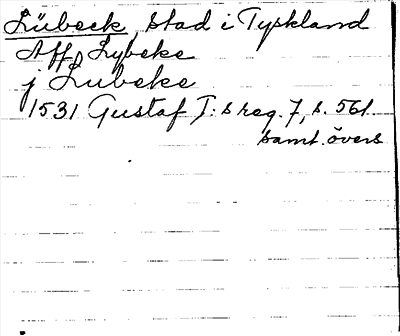 Lübeck, stad i Tyskland
Aff Lybeke
j Lubeke
1531 Gustaf I:s reg. 7, s. 561
samt. övers